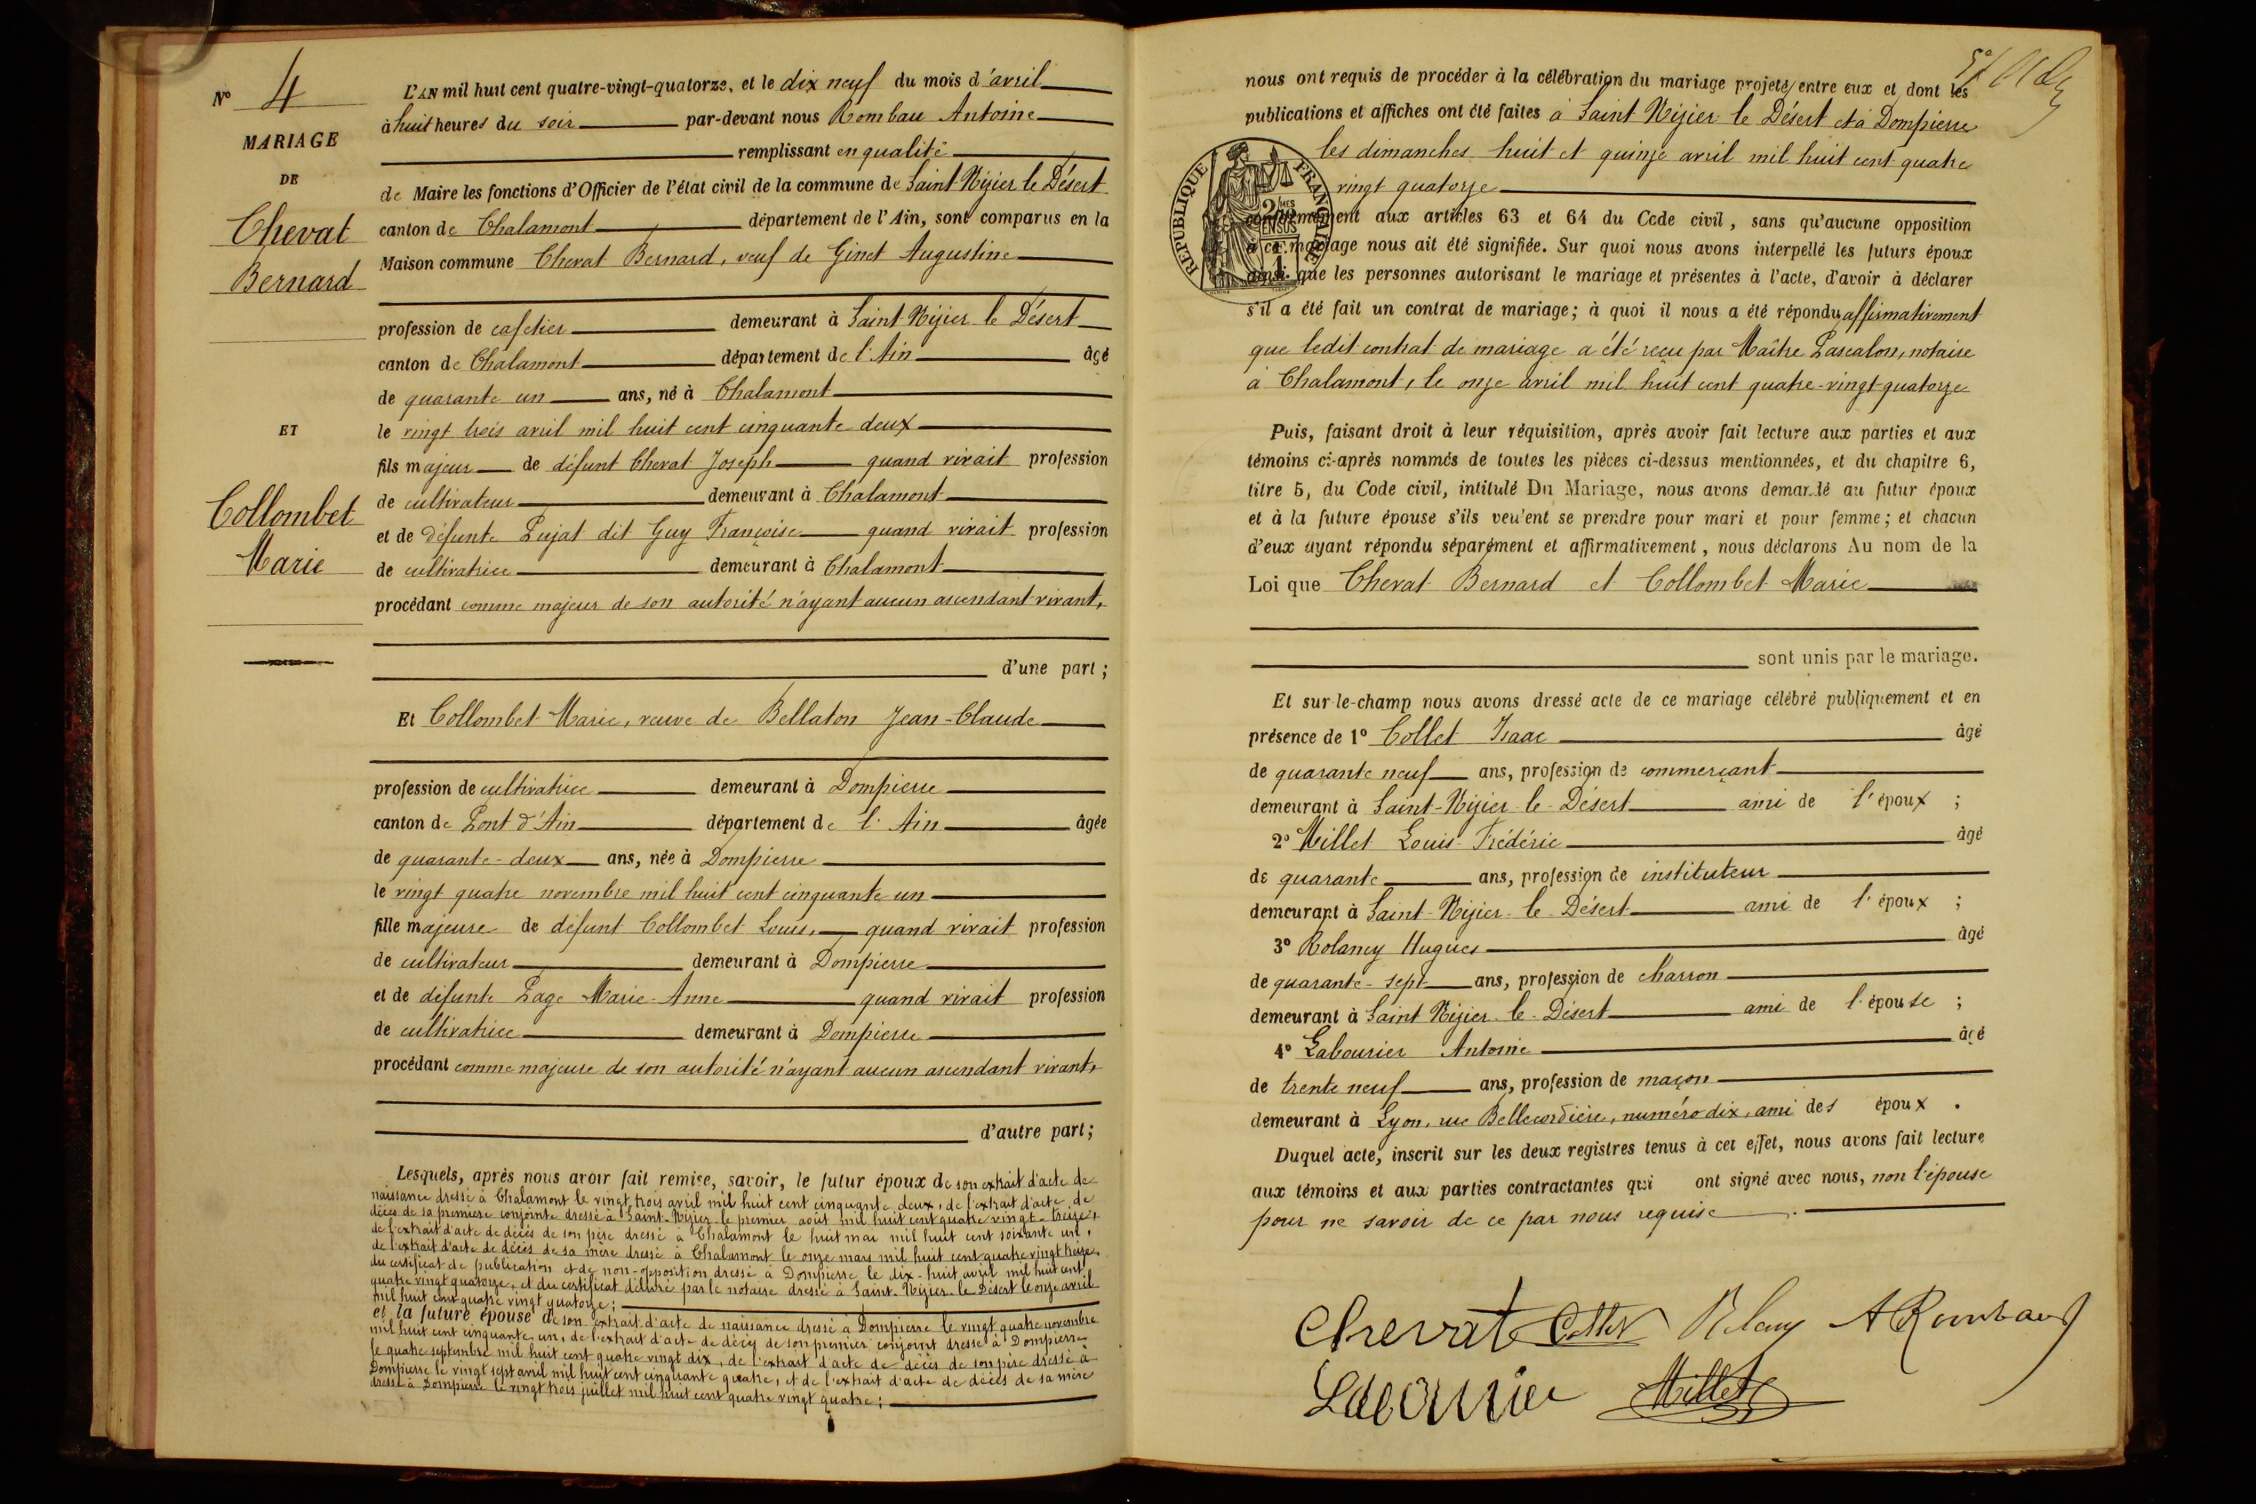 N° 4
MARIAGE
DE
Chevat
Bernard
ET
Collombet
Marie
L'AN mil huit cent quatre-vingt-quatorze, et le dix neuf du mois d'avril
à huit heures du soir par-devant nous Rombau Antoine
remplissant en qualité
de Maire les fonctions d'Officier de l'état civil de la commune de Saint Nizier le Désert
canton de Chalamont département de l'Ain, sont comparus en la
Maison commune Chevat Bernard, veuf de Ginet Augustine
profession de cafetier demeurant à Saint-Nizier le Désert
canton de Chalamont département de l'Ain âgé
de quarante un ans, né à Chalamont
le vingt trois avril mil huit cent cinquante deux
fils majeur de défunt Chevat Joseph quand vivait profession
de cultivateur demeurant à Chalamont
et de défunte Pujat dit Guy Françoise quand vivait profession
de cultivatrice demeurant à Chalamont
procédant comme majeur de son autorité n'ayant aucun ascendant vivant,
d'une part ;
Et Collombet Marie, veuve de Bellaton Jean-Claude
profession de cultivatrice demeurant à Dompierre
canton de Pont d'Ain département de l'Ain âgée
de quarante-deux ans, née à Dompierre
le vingt quatre novembre mil huit cent cinquante un
fille majeure de défunt Collombet Louis, quand vivait profession
de cultivateur demeurant à Dompierre
et de défunte Page Marie-Anne quand vivait profession
de cultivatrice demeurant à Dompierre
procédant comme majeure de son autorité n'ayant aucun ascendant vivant,
d'autre part ;
Lesquels, après nous avoir fait remise, savoir, le futur époux de son extrait d'acte de
naissance dressé à Chalamont le vingt trois avril mil huit cent cinquante deux, de l'extrait d'acte de
décès de sa première conjointe dressé à Saint-Nizier le premier août mil huit cent quatre vingt-treize,
de l'extrait d'acte de décès de son père dressé à Chalamont le huit mai mil huit cent soixante un,
de l'extrait d'acte de décès de sa mère dressé à Chalamont le onze mars mil huit cent quatre vingt treize,
du certificat de publication et de non-opposition dressé à Dompierre le dix-huit avril mil huit cent
quatre vingt quatorze, et du certificat délivré par le notaire dressé à Saint-Nizier-le Désert le onze avril
mil huit cent quatre vingt quatorze ;
et la future épouse de son extrait d'acte de naissance dressé à Dompierre le vingt quatre novembre
mil huit cent cinquante un, de l'extrait d'acte de décès de son premier conjoint dressé à Dompierre
le quatre septembre mil huit cent quatre vingt dix, de l'extrait d'acte de décès de son père dressé à
Dompierre le vingt sept avril mil huit cent cinquante quatre, et de l'extrait d'acte de décès de sa mère
dressé à Dompierre le vingt trois juillet mil huit cent quatre vingt quatre ;
nous ont requis de procéder à la célébration du mariage projeté entre eux et dont les
publications et affiches ont été faites à Saint Nizier le Désert et à Dompierre
les dimanches huit et quinze avril mil huit cent quatre
vingt quatorze
RÉPUBLIQUE FRANÇAISE
conformément aux articles 63 et 64 du Code civil, sans qu'aucune opposition
à ce mariage nous ait été signifiée. Sur quoi nous avons interpellé les futurs époux
ainsi que les personnes autorisant le mariage et présentes à l'acte, d'avoir à déclarer
s'il a été fait un contrat de mariage ; à quoi il nous a été répondu affirmativement
que ledit contrat de mariage a été reçu par Maître Lascalon, notaire
à Chalamont, le onze avril mil huit cent quatre-vingt-quatorze
Puis, faisant droit à leur réquisition, après avoir fait lecture aux parties et aux
témoins ci-après nommés de toutes les pièces ci-dessus mentionnées, et du chapitre 6,
titre 5, du Code civil, intitulé Du Mariage, nous avons demandé au futur époux
et à la future épouse s'ils veulent se prendre pour mari et pour femme ; et chacun
d'eux ayant répondu séparément et affirmativement, nous déclarons Au nom de la
Loi que Chevat Bernard et Collombet Marie
sont unis par le mariage.
Et sur-le-champ nous avons dressé acte de ce mariage célébré publiquement et en
présence de 1° Collet Isaac âgé
de quarante neuf ans, profession de commerçant
demeurant à Saint-Nizier-le-Désert ami de l'époux ;
2° Millet Louis-Frédéric âgé
de quarante ans, profession de instituteur
demeurant à Saint-Nizier-le-Désert ami de l'époux ;
3° Rolancy Hugues âgé
de quarante-sept ans, profession de charron
demeurant à Saint Nizier-le-Désert ami de l'épouse ;
4° Labourier Antoine âgé
de trente neuf ans, profession de maçon
demeurant à Lyon, rue Bellecordière, numéro dix, ami des époux .
Duquel acte, inscrit sur les deux registres tenus à cet effet, nous avons fait lecture
aux témoins et aux parties contractantes qui ont signé avec nous, non l'épouse
pour ne savoir de ce par nous requise .
Chevat Collet Rolancy A Rombau
Labourier Millet